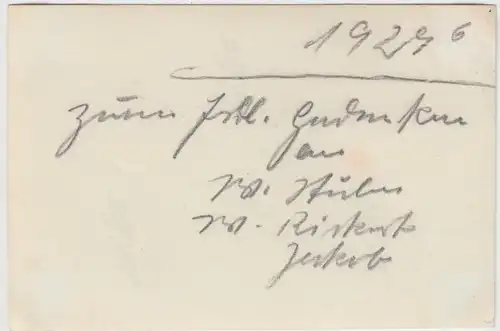 1929 6
zum frdl. Gedenken
an
W. Stuhr
W. Rickert
Jakob